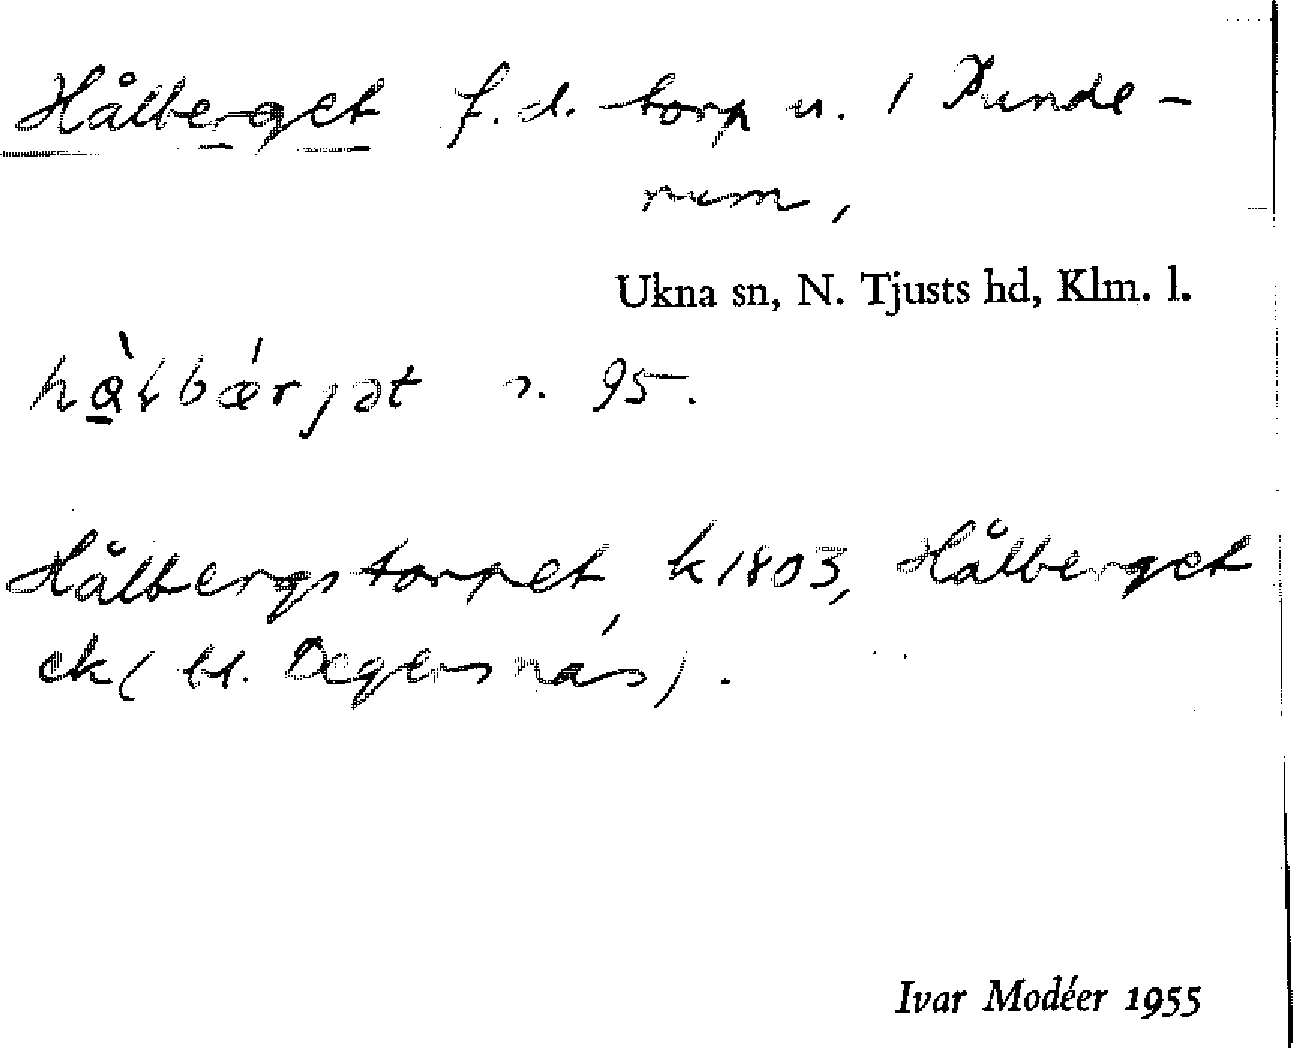 Hålberget f.d. torp u. 1 Punde-
rum,
Ukna sn, N. Tjusts hd, Klm. l.
hå̀ɫbǽrjət s. 95.
Hålbergstorpet k 1803, Hålberget
ek (bl. Degersnäs).
Ivar Modéer 1955